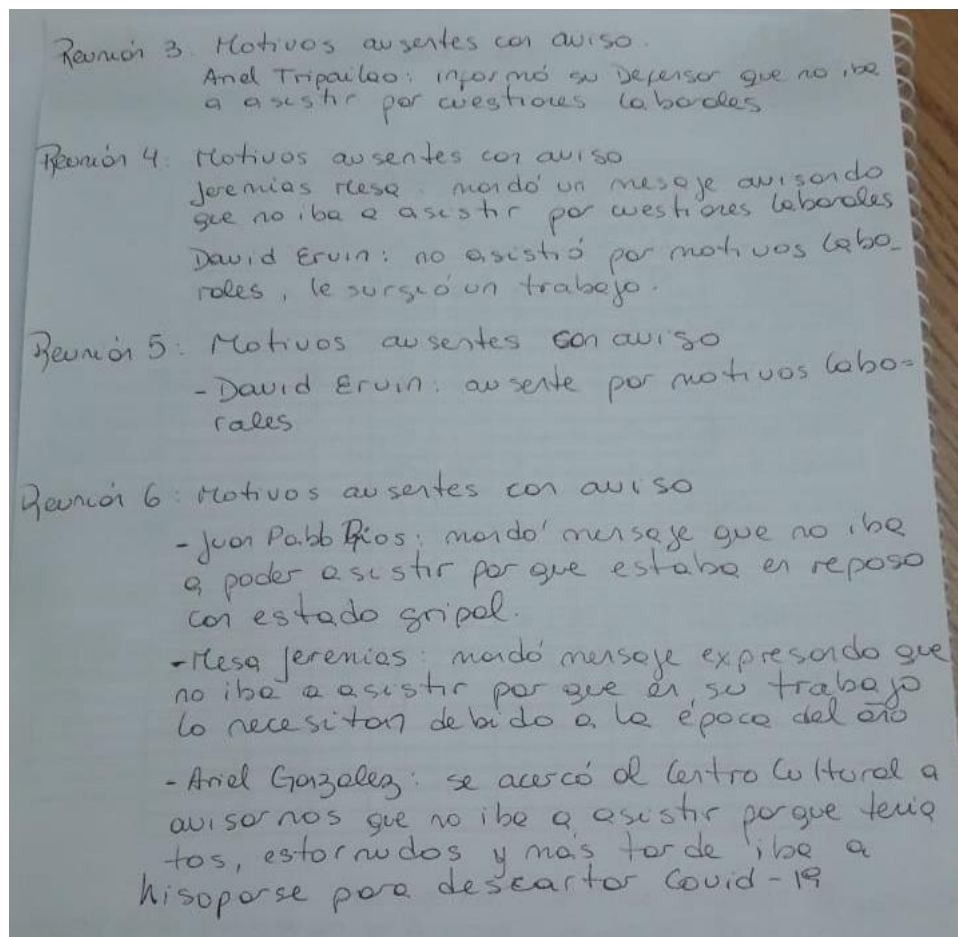 Reunión 3. Motivos ausentes con aviso.
Ariel Tripailao: informó su Defensor que no iba
a asistir por cuestiones laborales
Reunión 4: Motivos ausentes con aviso
Jeremias Mesa: mandó un mesaje avisando
que no iba a asistir por cuestiones laborales
David Ervin: no asistió por motivos labo-
rales, le surgió un trabajo.
Reunión 5: Motivos ausentes con aviso
- David Ervin: ausente por motivos labo=
rales
Reunión 6: Motivos ausentes con aviso
- Juan Pablo Rios: mandó mensaje que no iba
a poder asistir por que estaba en reposo
con estado gripal.
- Mesa Jeremias: mandó mensaje expresando que
no iba a asistir por que en su trabajo
lo necesitan debido a la época del año
- Ariel Gonzalez: se acercó al Centro Cultural a
avisarnos que no iba a asistir porque tenia
tos, estornudos y más tarde iba a
hisoparse para descartar Covid-19